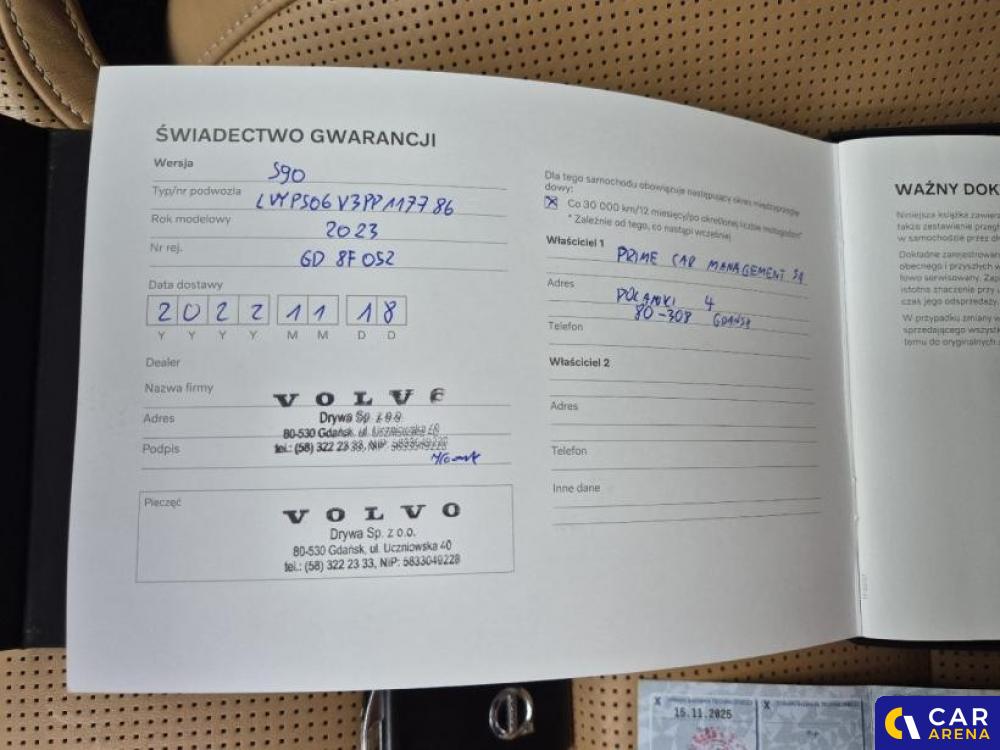 ŚWIADECTWO GWARANCJI
Wersja
S90
Typ/nr podwozia
LVYPS06V3PP117786
Rok modelowy
2023
Nr rej.
GD 8F052
Data dostawy
2 0 2 2 1 1 1 8
Y Y Y Y M M D D
Dealer
Nazwa firmy
VOLVO
Adres
Drywa Sp. z o.o.
80-530 Gdańsk, ul. Uczniowska 40
Podpis
tel.: (58) 322 23 33, NIP: 5833049228
Pieczęć
VOLVO
Drywa Sp. z o.o.
80-530 Gdańsk, ul. Uczniowska 40
tel.: (58) 322 23 33, NIP: 5833049228
Dla tego samochodu obowiązuje następujący okres międzyprzeglę
dowy:
X Co 30 000 km/12 miesięcy/po określonej liczbie motogodzin*
* Zależnie od tego, co nastąpi wcześniej
Właściciel 1
PRIME CAR MANAGEMENT SA
Adres
POLANKI 4
80-308 GDAŃSK
Telefon
Właściciel 2
Adres
Telefon
Inne dane
WAŻNY DOK
Niniejsza książka zawiera
także zestawienie przeglą
w samochodzie przez de
Dokładne zarejestrowani
obecnego i przyszłych w
łowo serwisowany. Zap
istotne znaczenie przy
czas jego odsprzedaży.
W przypadku zmiany w
sprzedającego wszystk
temu do oryginalnych
X
15.11.2025
X
CAR
ARENA